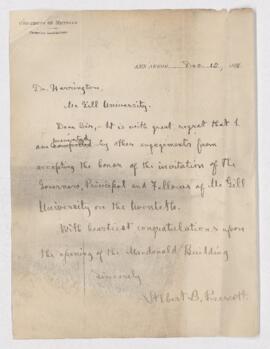 UNIVERSITY OF MICHIGAN
CHEMICAL LABORATORY
ANN ARBOR, Dec. 12, 189
Dr. Harrington,
Mc Gill University.
Dear Sir,- It is with great regret that I
prevented
am compelled by other engagements from
accepting the honor of the invitation of the
Governors, Principal and Fellows of Mc Gill
University on the twentieth.
With heartiest congratulations upon
the opening of the Macdonald Building
Sincerely
Albert B. Prescott.